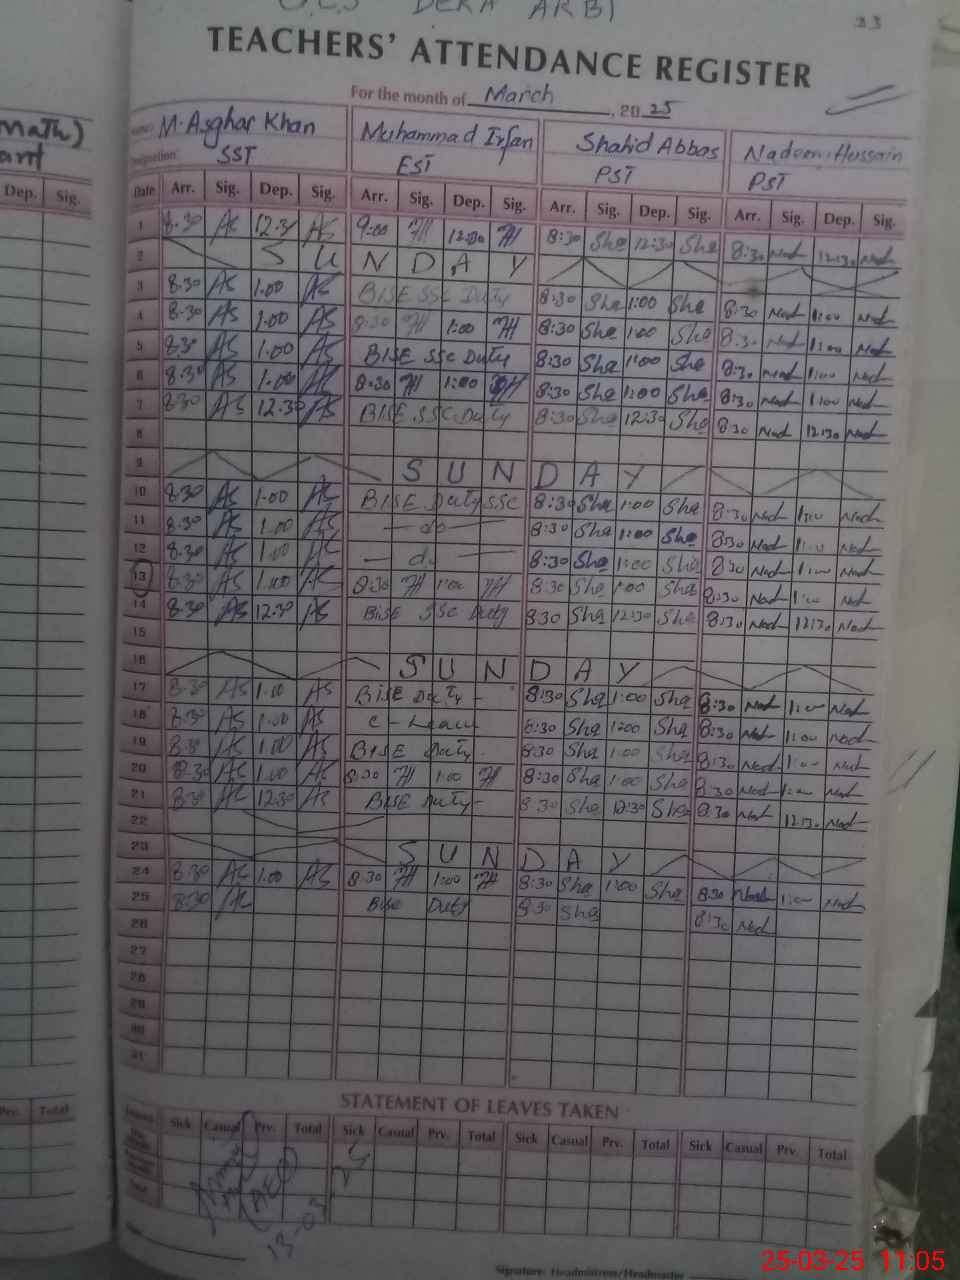 DERA ARBI
23
TEACHERS' ATTENDANCE REGISTER
For the month of March, 2025
Math)
M. Asghar Khan Muhammad Irfan Shahid Abbas Nadeem Hussain
Designation: SST EST PST PST
Dep. Sig. Date Arr. Sig. Dep. Sig. Arr. Sig. Dep. Sig. Arr. Sig. Dep. Sig. Arr. Sig. Dep. Sig.
1 8.30 AS 12.3 AS 9:00 12:30 8:30 Sha 12:30 Sha 8:30 Nad 12:30 Nad
2 S U N D A Y
3 8.30 AS 1.00 AS BISE SSC Duty 8:30 Sha 1:00 Sha 8:30 Nad 1:00 Nad
4 8.30 AS 1.00 AS 8:30 1:00 8:30 Sha 1:00 Sha 8:30 Nad 1:00 Nad
5 8.30 AS 1.00 AS BISE SSC Duty 8:30 Sha 1:00 Sha 8:30 Nad 1:00 Nad
6 8.30 AS 1.00 AS 8:30 1:00 8:30 Sha 1:00 Sha 8:30 Nad 1:00 Nad
7 8.30 AS 12.30 AS BISE SSC Duty 8:30 Sha 12:30 Sha 8:30 Nad 12:30 Nad
8
9 S U N D A Y
10 8.30 AS 1.00 AS BISE Duty SSC 8:30 Sha 1:00 Sha 8:30 Nad 1:00 Nad
11 8.30 AS 1.00 AS — do — 8:30 Sha 1:00 Sha 8:30 Nad 1:00 Nad
12 8.30 AS 1.00 AS — do — 8:30 Sha 1:00 Sha 8:30 Nad 1:00 Nad
13 8.30 AS 1.00 AS 8:30 1:00 8:30 Sha 1:00 Sha 8:30 Nad 1:00 Nad
14 8.30 AS 12.30 AS BISE SSC Duty 8:30 Sha 12:30 Sha 8:30 Nad 12:30 Nad
15
16 S U N D A Y
17 8.30 AS 1.00 AS BISE Duty - 8:30 Sha 1:00 Sha 8:30 Nad 1:00 Nad
18 8.30 AS 1.00 AS C-Leave 8:30 Sha 1:00 Sha 8:30 Nad 1:00 Nad
19 8.30 AS 1.00 AS BISE Duty 8:30 Sha 1:00 Sha 8:30 Nad 1:00 Nad
20 8.30 AS 1.00 AS 8:30 1:00 8:30 Sha 1:00 Sha 8:30 Nad 1:00 Nad
21 8.30 AS 12.30 AS BISE Duty - 8:30 Sha 12:30 Sha 8:30 Nad 12:30 Nad
22
23 S U N D A Y
24 8.30 AS 1.00 AS 8:30 1:00 8:30 Sha 1:00 Sha 8:30 Nad 1:00 Nad
25 8.30 AS Bise Duty 8:30 Sha 8:30 Nad
26
27
28
29
30
31
STATEMENT OF LEAVES TAKEN
Prv. Total Sick Casual Prv. Total Sick Casual Prv. Total Sick Casual Prv. Total Sick Casual Prv. Total
(AEO)
13-03
25
Signature: Headmistress/Headmaster
25-03-25 11:05